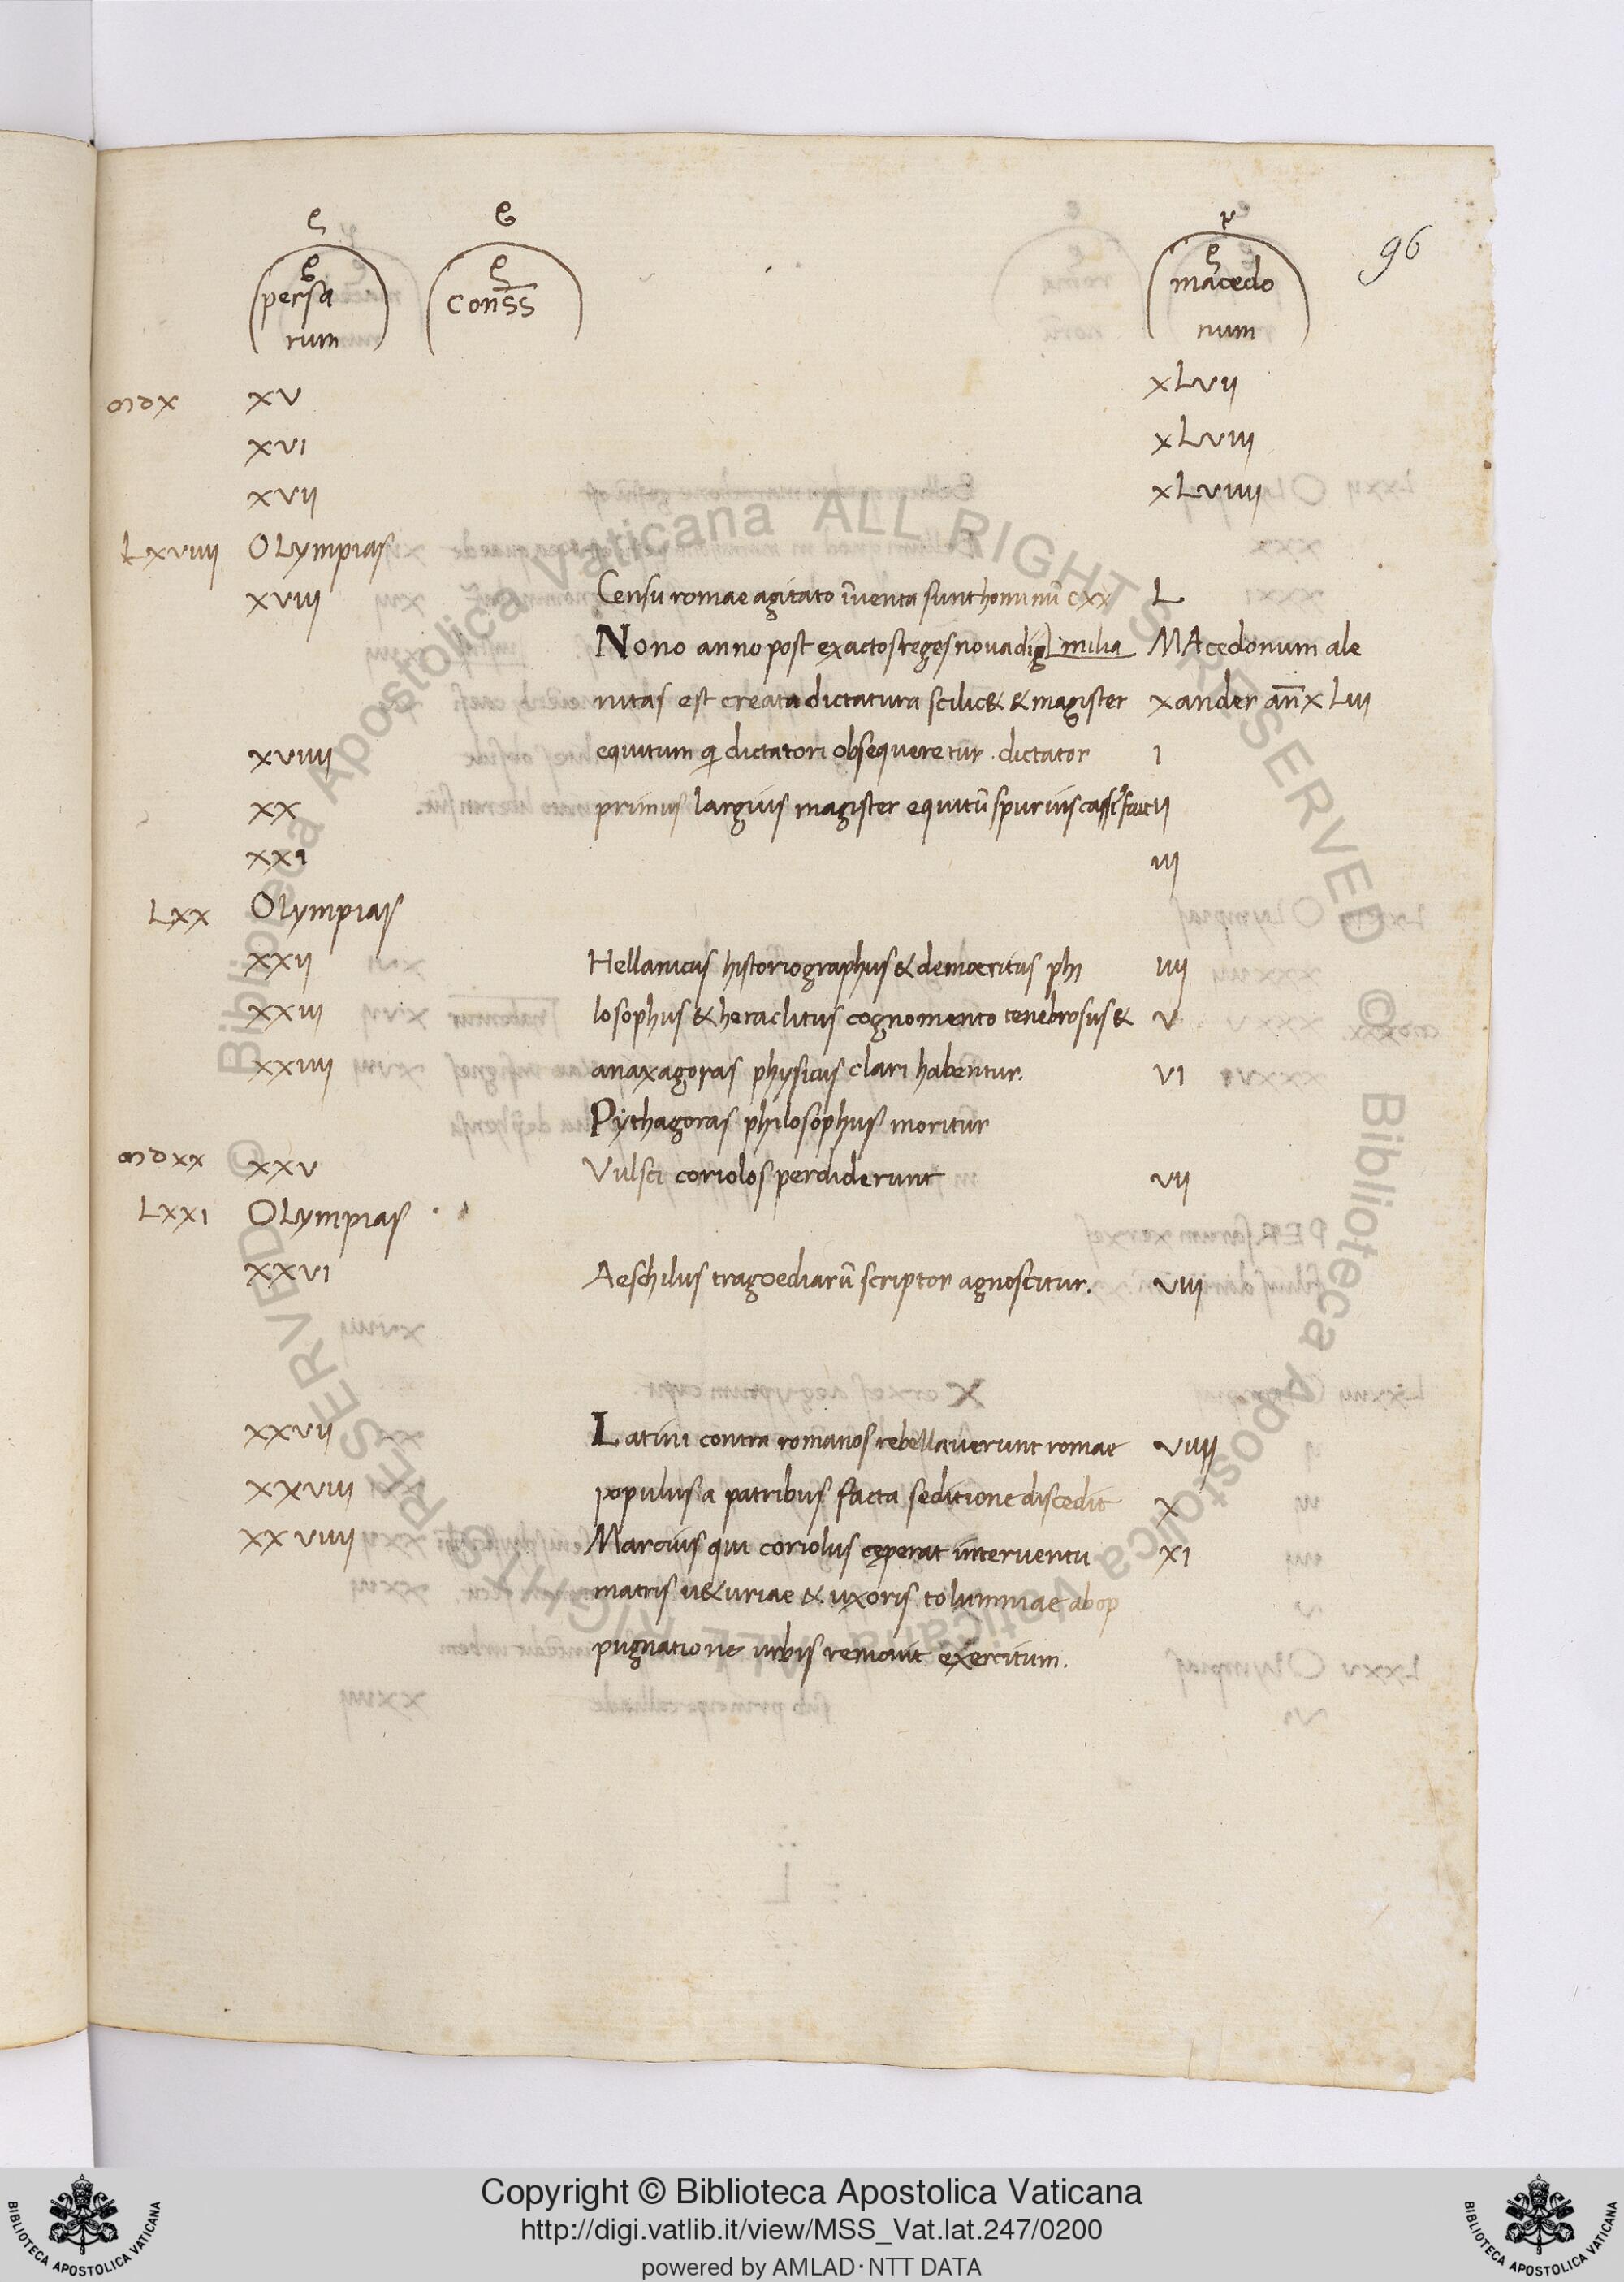 96
persa
rum
conss
macedo
num
ꝏdx xv xLvii
xvi xLviii
xvii xLviiii
Lxviiii OLympias
xviii Censu romae agitato īuenta sunt hominū cxx L
Nono anno post exactos reges noua dig milia MAcedonum ale
nitas est creata dictatura scilic& & magister xander an̄ xLiii
xviiii equitum qi dictatori obsequeretur. dictator i
xx primus largius magister equitū spurius cassius fuit ii
xxi iii
Lxx OLympias
xxii Hellanicus historiographus & democritus phi iiii
xxiii losophus & heraclitus cognomento tenebrosus & v
xxiiii anaxagoras physicus clari habentur. vi
Pythagoras philosophus moritur
ꝏdxx xxv Vulsci coriolos perdiderunt vii
Lxxi OLympias
xxvi Aeschilus tragoediarū scriptor agnoscitur. viii
xxvii Latini contra romanos rebellauerunt romae viiii
xxviii populus a patribus facta seditione discedit x
xxviiii Marcius qui coriolus cęperat interuentu xi
matris u&uriae & uxoris tolumniae ab op
pugnatione urbis remouit exercitum.
© Biblioteca Apostolica Vaticana ALL RIGHTS RESERVED © Biblioteca Apostolica Vaticana ALL RIGHTS RESERVED
Copyright © Biblioteca Apostolica Vaticana
http://digi.vatlib.it/view/MSS_Vat.lat.247/0200
powered by AMLAD·NTT DATA
BIBLIOTECA APOSTOLICA VATICANA
BIBLIOTECA APOSTOLICA VATICANA